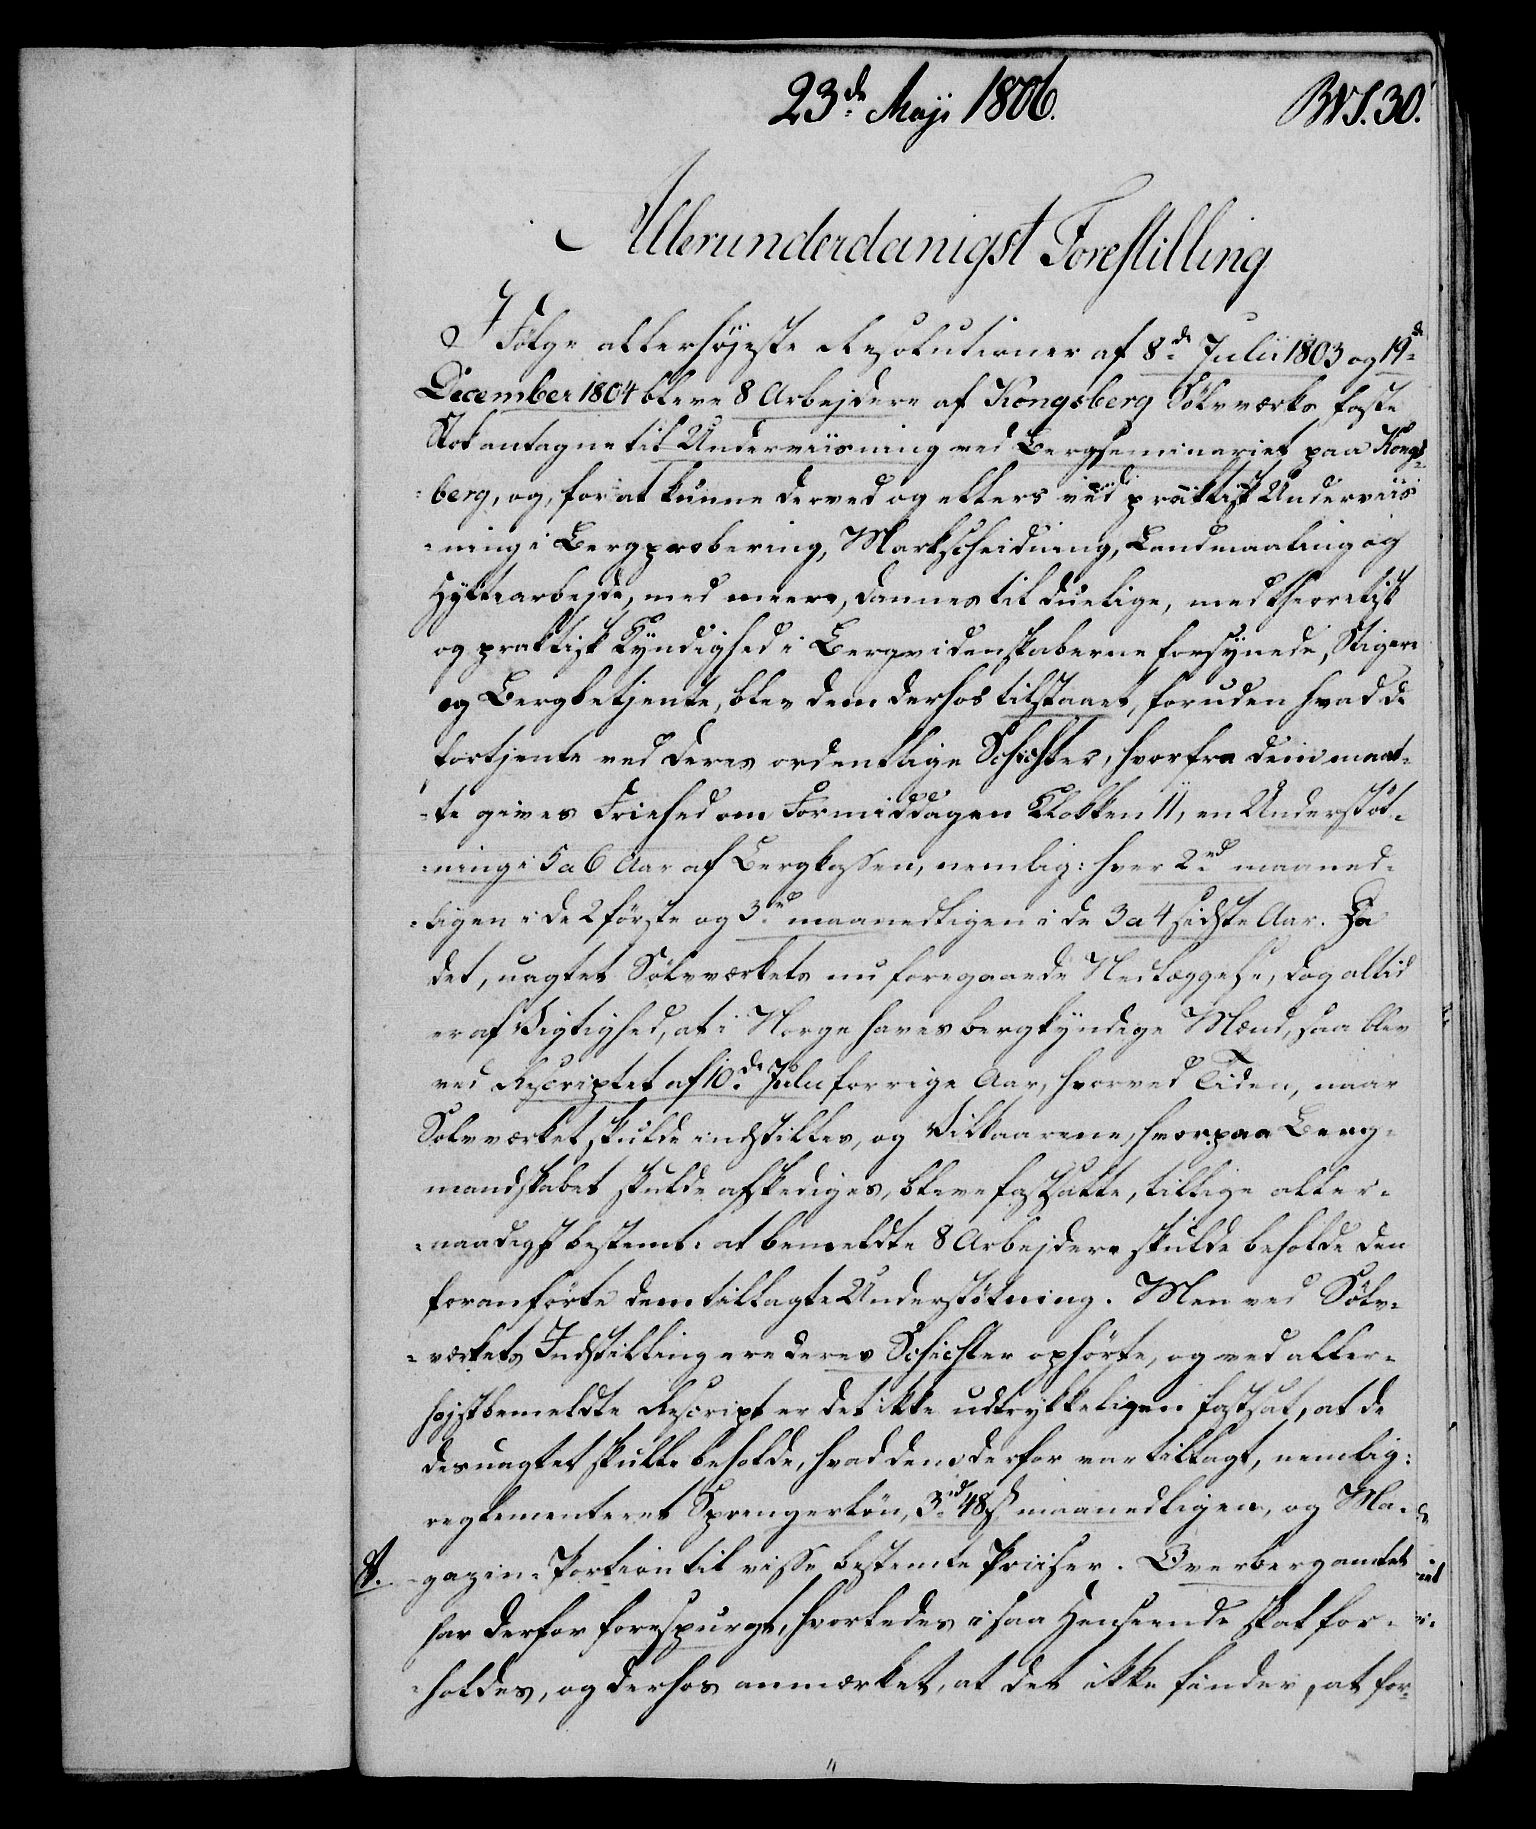 23de Maji 1806.
BVS. 30.
Allerunderdanigst Forestilling
I Følge allerhøjeste Resolutioner af 8de Julii 1803 og 19de
December 1804 bleve 8 Arbejdere af Kongsberg Sølvverks faste
Stok antagne til Underviisning ved Bergseminariet paa Kongs-
berg, og, for at kunne derved og ellers ved praktisk Underviis-
ning i Bergprobering, Markscheidning, Landmaaling og
Hyttearbejde, med meere, dannes til duelige, med theoretisk
og praktisk Kyndighed i Bergvidenskaberne forsynede, Stigere
og Bergbetjente, blev dem derhos tilstaaet, foruden hvad de
fortjente ved deres ordentlige Schichter, hvorfra dem maat-
te gives Friehed om Formiddagen Klokken 11, en Understøt-
ning i 5 a 6 Aar af Bergkassen, nemlig: hver 2rd maaned-
ligen i de 2 første og 3rd maanedligen i de 3 a 4 sidste Aar. Da
det, uagtet Sølvværkets nu foregaaede Nedlæggelse, dog altid
er af Vigtighed, at i Norge haves bergkyndige Mænd, saa blev
ved Rescriptet af 10de Julii forrige Aar, hvorved Tiden, naar
Sølvværket skulde indstilles, og Vilkaarene, hvorpaa Berg-
mandskabet skulde afskediges, bleve fastsatte, tillige aller-
naadigst bestemt: at bemeldte 8 Arbejdere skulde beholde den
foranførte dem tillagte Understøtning. Men ved Sølv-
værkets Indstilling ere deres Schichter ophørte, og ved aller-
højstbemeldte Rescript er det ikke udtrykkeligen fastsat, at de
desuagtet skulle beholde, hvad dem derfor var tillagt, nemlig:
reglementeret Sprengerløn, 3rd 48 s maanedligen, og Ma-
gazin-Portion til visse bestemte Priser. Overbergamtet
har derfor forespurgt, hvorledes i saa Henseende skal for-
holdes, og derhos anmærket, at det ikke finder, at for-